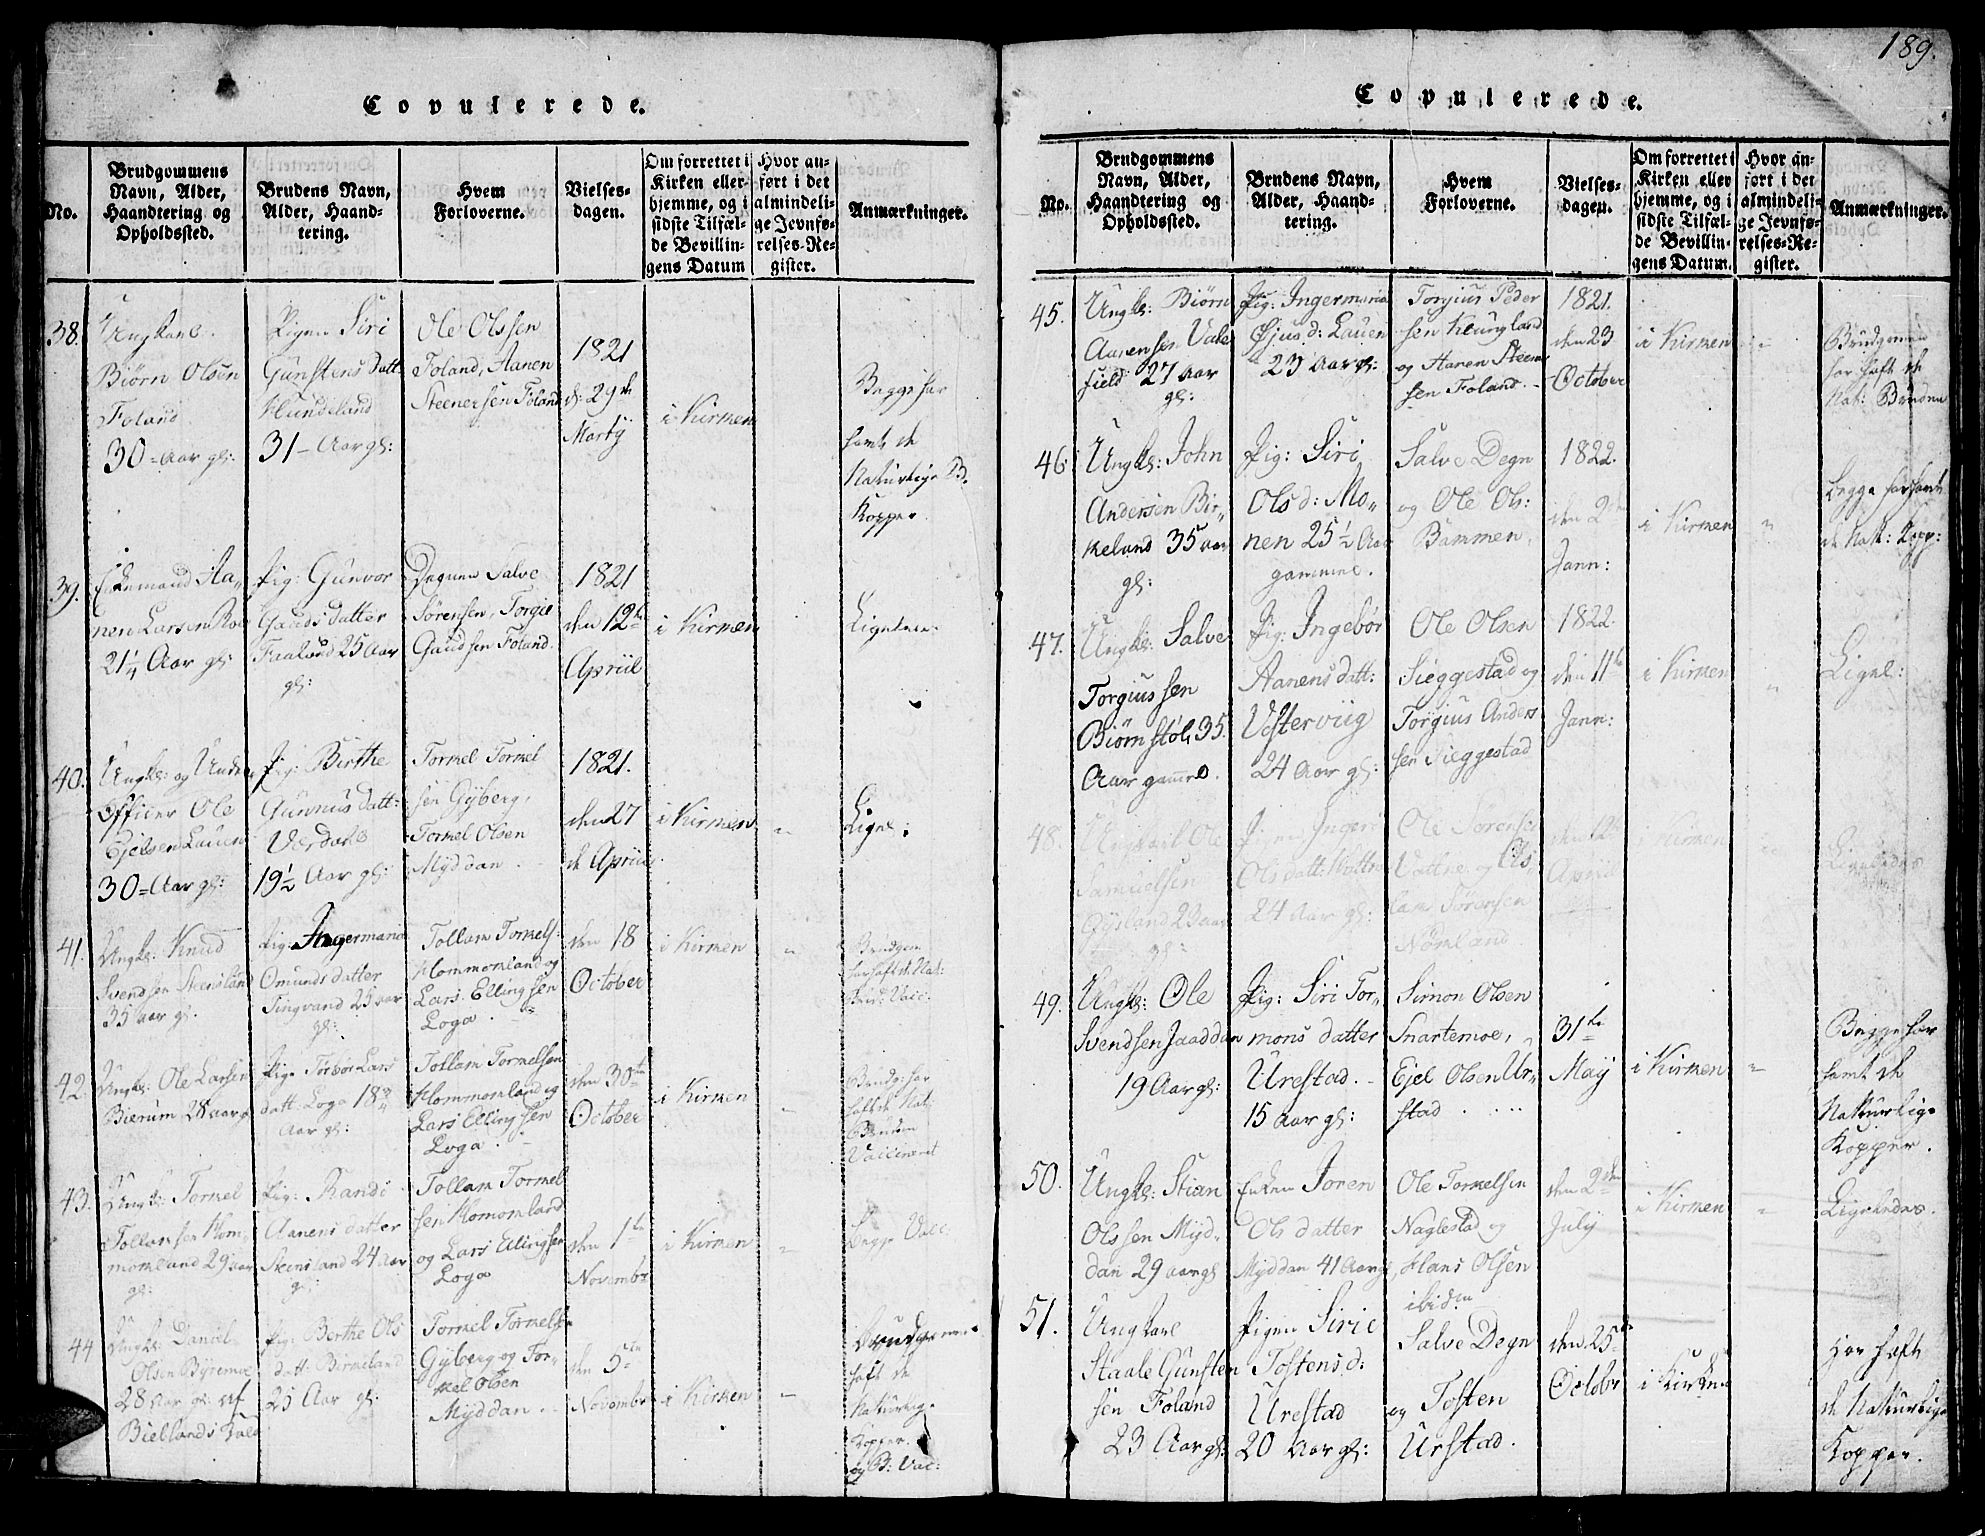 189.
Copulerede.
No.
Brudgommens Navn, Alder, Haandtering og Opholdssted.
Brudens Navn, Alder, Haandtering.
Hvem Forloverne.
Vielsesdagen.
Om forrettet i Kirken eller hjemme, og i sidste Tilfælde Bevillingens Datum
Hvor anført i det almindelige Jevnførelses-Register.
Anmærkninger.
38.
Ungkarl
Biørn Olsen
Foland
30 = Aar gl:
Pigen Siri
Gunstens Datt:
Hundeland
31 – Aar gl:
Ole Olssen
Foland, Aanen
Steenersen Foland
1821
d: 29de
Martÿ
i Kirken
Begge har
havt de
Naturlige B.
Kopper.
39.
Enkemand Aa„
nen Larsen
21¼ Aar gl:
Pig: Gunvor
Gaudsdatter
Faaland 25 Aar
gl:
Degnen Salve
Sørensen, Torgie
Gaudsen Foland.
1821
den 12te
Apriil
i Kirken
Ligeleeds
40.
Ungk: og Under
Officier Ole
Ejelsen Lauen
30 = Aar gl:
Pig: Birthe
Gunnusdatt:
Verdahl
19½ Aar gl:
Tormel Tormel
sen Gÿberg,
Tormel Olsen
Mÿddan.
1821.
den 27
de Apriil
i Kirken
"
Ligel:
41.
Ungk: Knud
Svendsen Steensland
35 aar gl.
Pig: Ingermana
Omundsdatter
Tingvand 25 aar
gl:
Tollam Tormels:
Hommomland og
Lars Ellingsen
Loga.
den 18
October
i Kirken
"
Brudgom
har haft de Nat:
Brud: Vacc:
42.
Ungk: Ole Larsen
Bierum 28 aar gl
Pige Torbor Lars
datt: Loga 18¾
Aar gl:
Tollam Tormelsen
Hommomland og
Lars Ellingsen
Loga.
den 30te
October
i Kirken
"
Brudg: har
haft de Nat:
Bruden
Vaccineret
43.
Ungk: Tormel
Tollamsen Hom„
momland 29 aar
gl:
Pig: Randi
Aanensdatter
Steensland 24 aar
gl:
Tollam Tormel
sen Homomland
og Lars Ellingsen
Loga
den 1te
November
i Kirken
"
begge Vacc.
44
Ungk: Daniel
Olsen Byremoe
28 Aar gl: af
Biellands Præld
Pig: Berthe Ols
datt: Birkeland
25 Aar gl:
Tormel Tormels
Gÿberg og Tor„
mel Olsen
Mÿddan.
den 5te
November
i Kirken
"
Brudgommen
haft de
Naturlige
Kopper.
og B: Vac:
Copulerede.
No.
Brudgommens Navn, Alder, Haandtering og Opholdssted.
Brudens Navn, Alder, Haandtering.
Hvem Forloverne.
Vielsesdagen.
Om forrettet i Kirken eller hjemme, og i sidste Tilfælde Bevillingens Datum.
Hvor anført i det almindelige Jevnførelses-Register.
Anmærkninger.
45.
Ungk: Biørn
Aanensen Vate
field 27 Aar
gl:
Pig: Ingermaria
Øjusd: Lauen
23 Aar gl:
Torjius Peder
sen Kleungland
og Aanen Steener
sen Foland.
1821.
den 23
October
i Kirken
"
Brudgommen
har haft de
Nat: Bruden
46
Ungk: John
Andersen Bir„
keland 35 aar
gl:
Pig: Siri
Olsd: Mo„
nen 25½ Aar
gammel.
Salve Degn
og Ole Ols:
Bammen.
1822.
den 2den
Jann:
i Kirken
"
begge har havt
de Nat: Kopp:
47.
Ungk: Salve
Torgiussen
Biørnstøl, 35.
Aar gammel.
Pig: Ingebør
Aanensdatt:
Vesterviig
24 Aar gl:
Ole Olsen
Sieggestad og
Torgius Anders
sen Sieggestad
1822.
den 11te
Jann:
i Kirken
"
Ligel:
48.
Ungkarl Ole
Samuelsen
Gÿsland 23 aar
gl:
Pigen Ingeri
Olsdatt:
24 Aar gl:
Ole Sørensen
Vatne og As„
lam Sørensen
Nomland
den 12te
Apriil
i Kirken
Ligeleedes
49.
Ungk: Ole
Svendsen Jaaddan
19 Aar gl:
Pig: Siri Tor„
monsdatter
Urestad.
15 Aar gl:
Simon Olsen
Snartemoe,
Ejel Olsen Ur„
stad
31te
Maÿ
i Kirken
"
Begge har
havt de
Naturlige
Kopper.
50.
Ungk: Stian
Olssen Mÿd„
dan 29 aar gl
Enken Joren
Olsdatter
Mÿddan 41 Aar gl,
Ole Tormelsen
Naglestad og
Hans Olsen
ibidm
den 2den
Julÿ
i Kirken
"
Ligeleedes.
51.
Ungkarl
Staale Gunsten
sen Foland
23 Aar gl:
Pigen Sirie
Tostensd:
Urestad
20 Aar gl:
Salve Degn
og Tosten
Urstad.
den 25de
Octobr
i Kirken
Har haft
de Naturlige
Kopper.